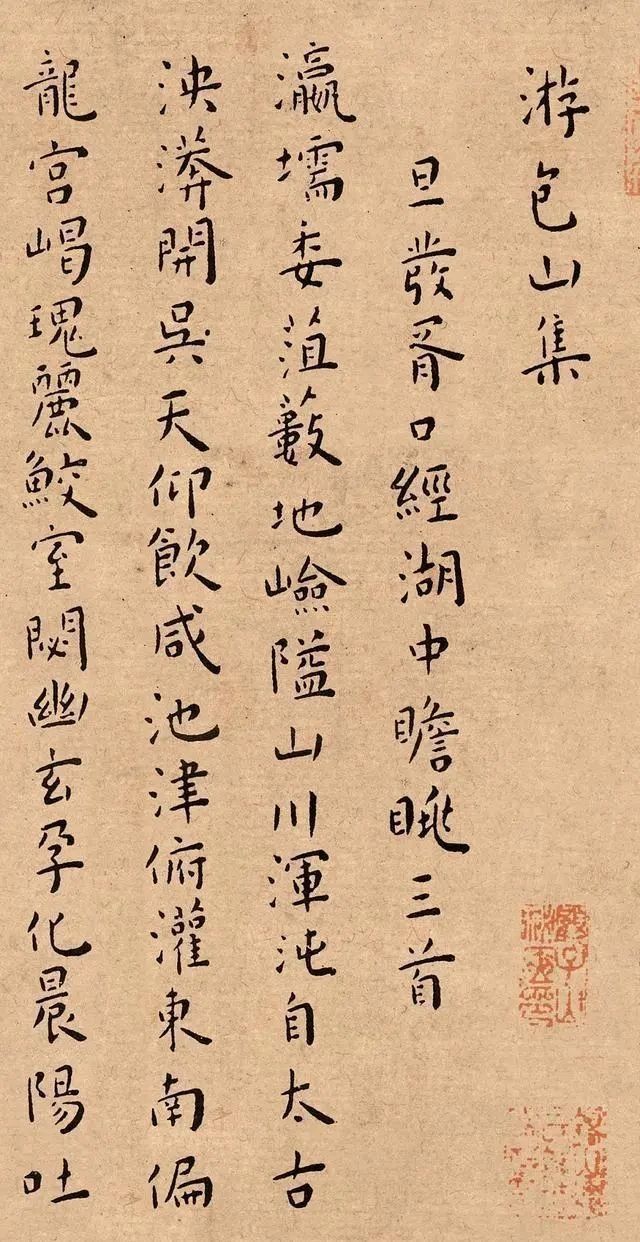 游包山集
旦發胥口經湖中瞻眺三首
瀛壖委菹藪地嶮隘山川渾沌自太古
泱漭開吳天仰飲咸池津俯灌東南偏
龍宮崵瑰麗鮫室閟幽玄孕化晨陽吐